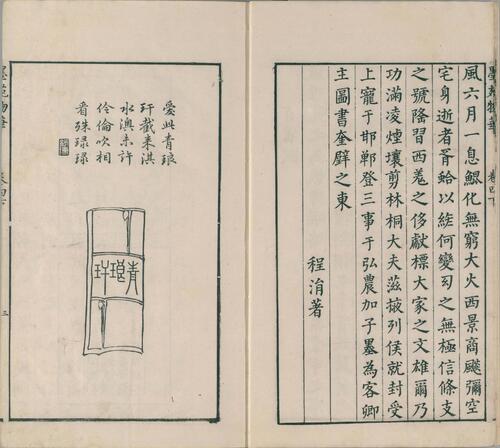 風六月一息鯤化無窮大火西景商飈彌空
宅身逝者胥給以絓何變匃之無極信條支
之號降習西羗之侈獻標大家之文雄爾乃
功滿凌煙壤剪林桐大夫滋掖列侯就封受
上寵于邯鄲登三事于弘農加子墨為客卿
主圖書奎壁之東
程涓著
愛此青琅
玕截來淇
水澳未許
伶倫吹相
看殊琭琭
青琅玕
三